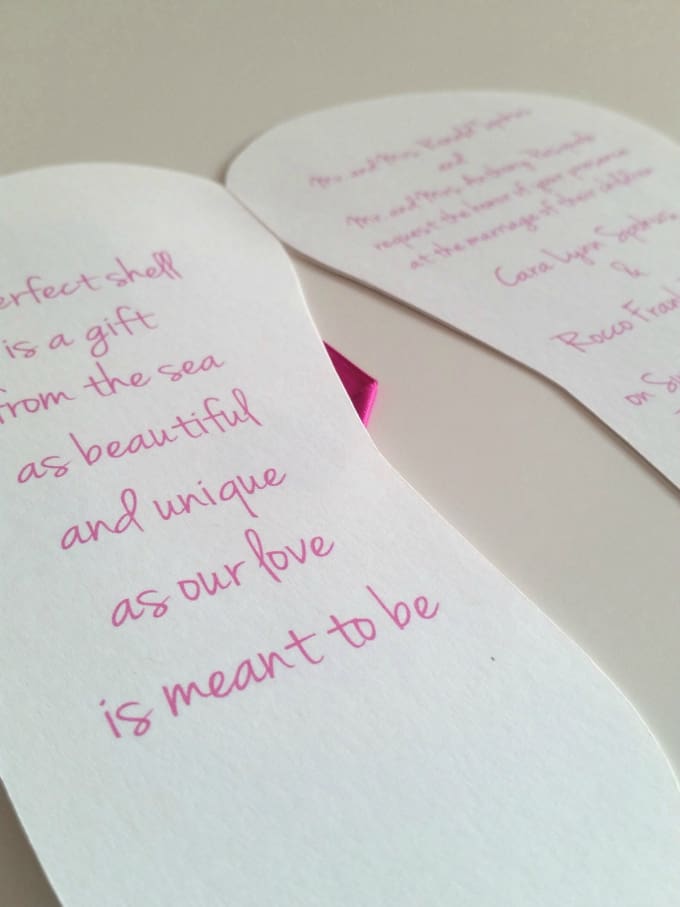 erfect shell
is a gift
from the sea
as beautiful
and unique
as our love
is meant to be
Mr. and Mrs. Ronald
and
Mr. and Mrs. Anthony
request the honor of your presence
at the marriage of their children
Cara Lynn
&
Rocco Frank
on